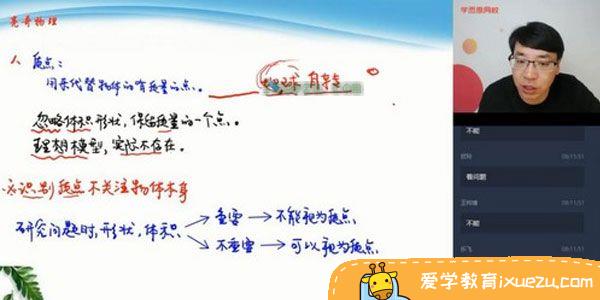 亮哥物理
学而思网校
1、质点：
用来代替物体的有质量的点。
地球 自转
忽略体积形状，保留质量的一个点。
理想模型，实际不存在。
识别质点 不关注物体本身
研究问题时，形状，体积
重要 → 不能视为质点
不重要 → 可以视为质点
不能
08:11:51
看问题
08:11:51
不能
08:11:51
爱学教育ixuezu.com